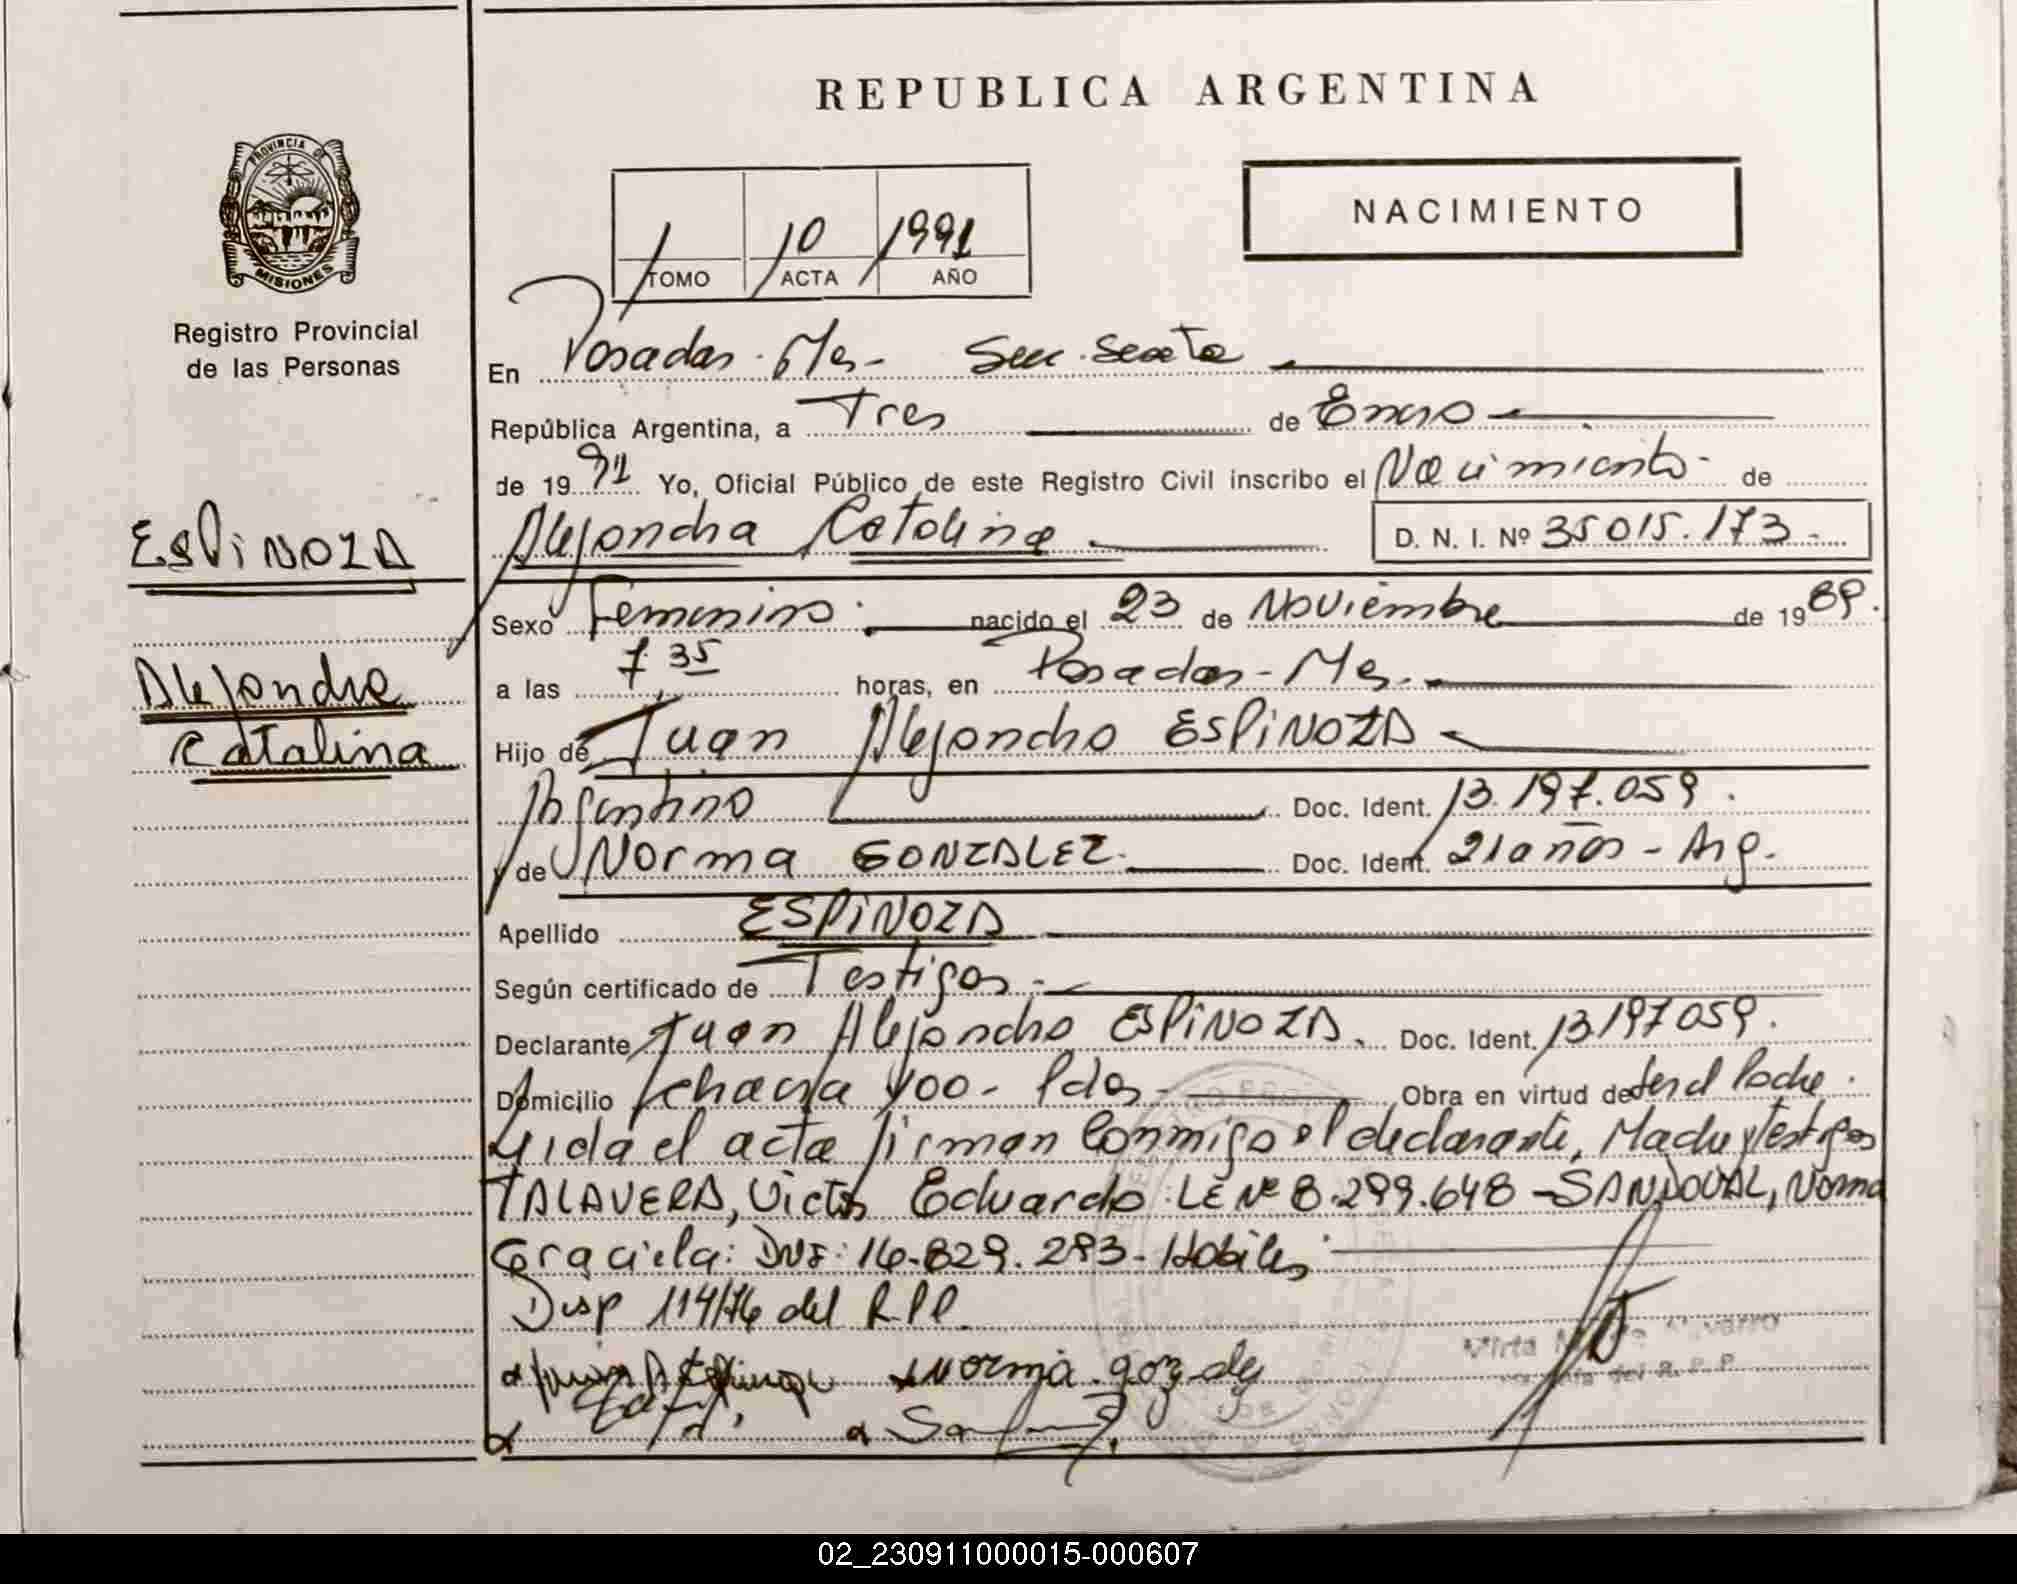 REPUBLICA ARGENTINA
PROVINCIA DE
MISIONES
Registro Provincial
de las Personas
1 10 1991
TOMO ACTA AÑO
NACIMIENTO
En Posadas - Mes - Secc. Sexta
República Argentina, a Tres de Enero
de 1991 Yo, Oficial Público de este Registro Civil inscribo el Nacimiento de
Alejandra Catalina D. N. I. Nº 35015.173
ESPiNOZA
Alejandra
Catalina
Sexo Femenino nacido el 23 de Noviembre de 1989.
a las 7.35 horas, en Posadas - Mes.
Hijo de Juan Alejandro ESPiNOZA
Argentino Doc. Ident. 13.197.059.
y de Norma GONZALEZ Doc. Ident. 21 años - Arg.
Apellido ESPiNOZA
Según certificado de Testigos
Declarante Juan Alejandro ESPiNOZA. Doc. Ident. 13197059.
Domicilio chacra 400 - Pdas - Obra en virtud de ser el Padre.
Leida el acta firman conmigo el declarante, Madre y Testigos
TALAVERA, Victor Eduardo LE Nº 8.299.648 - SANDOVAL, Norma
Graciela: DNI: 16.829.293 - Hábiles
Disp 114/76 del R.P.P.
Norma
Virta Navarro
del R.P.P.
02_230911000015-000607